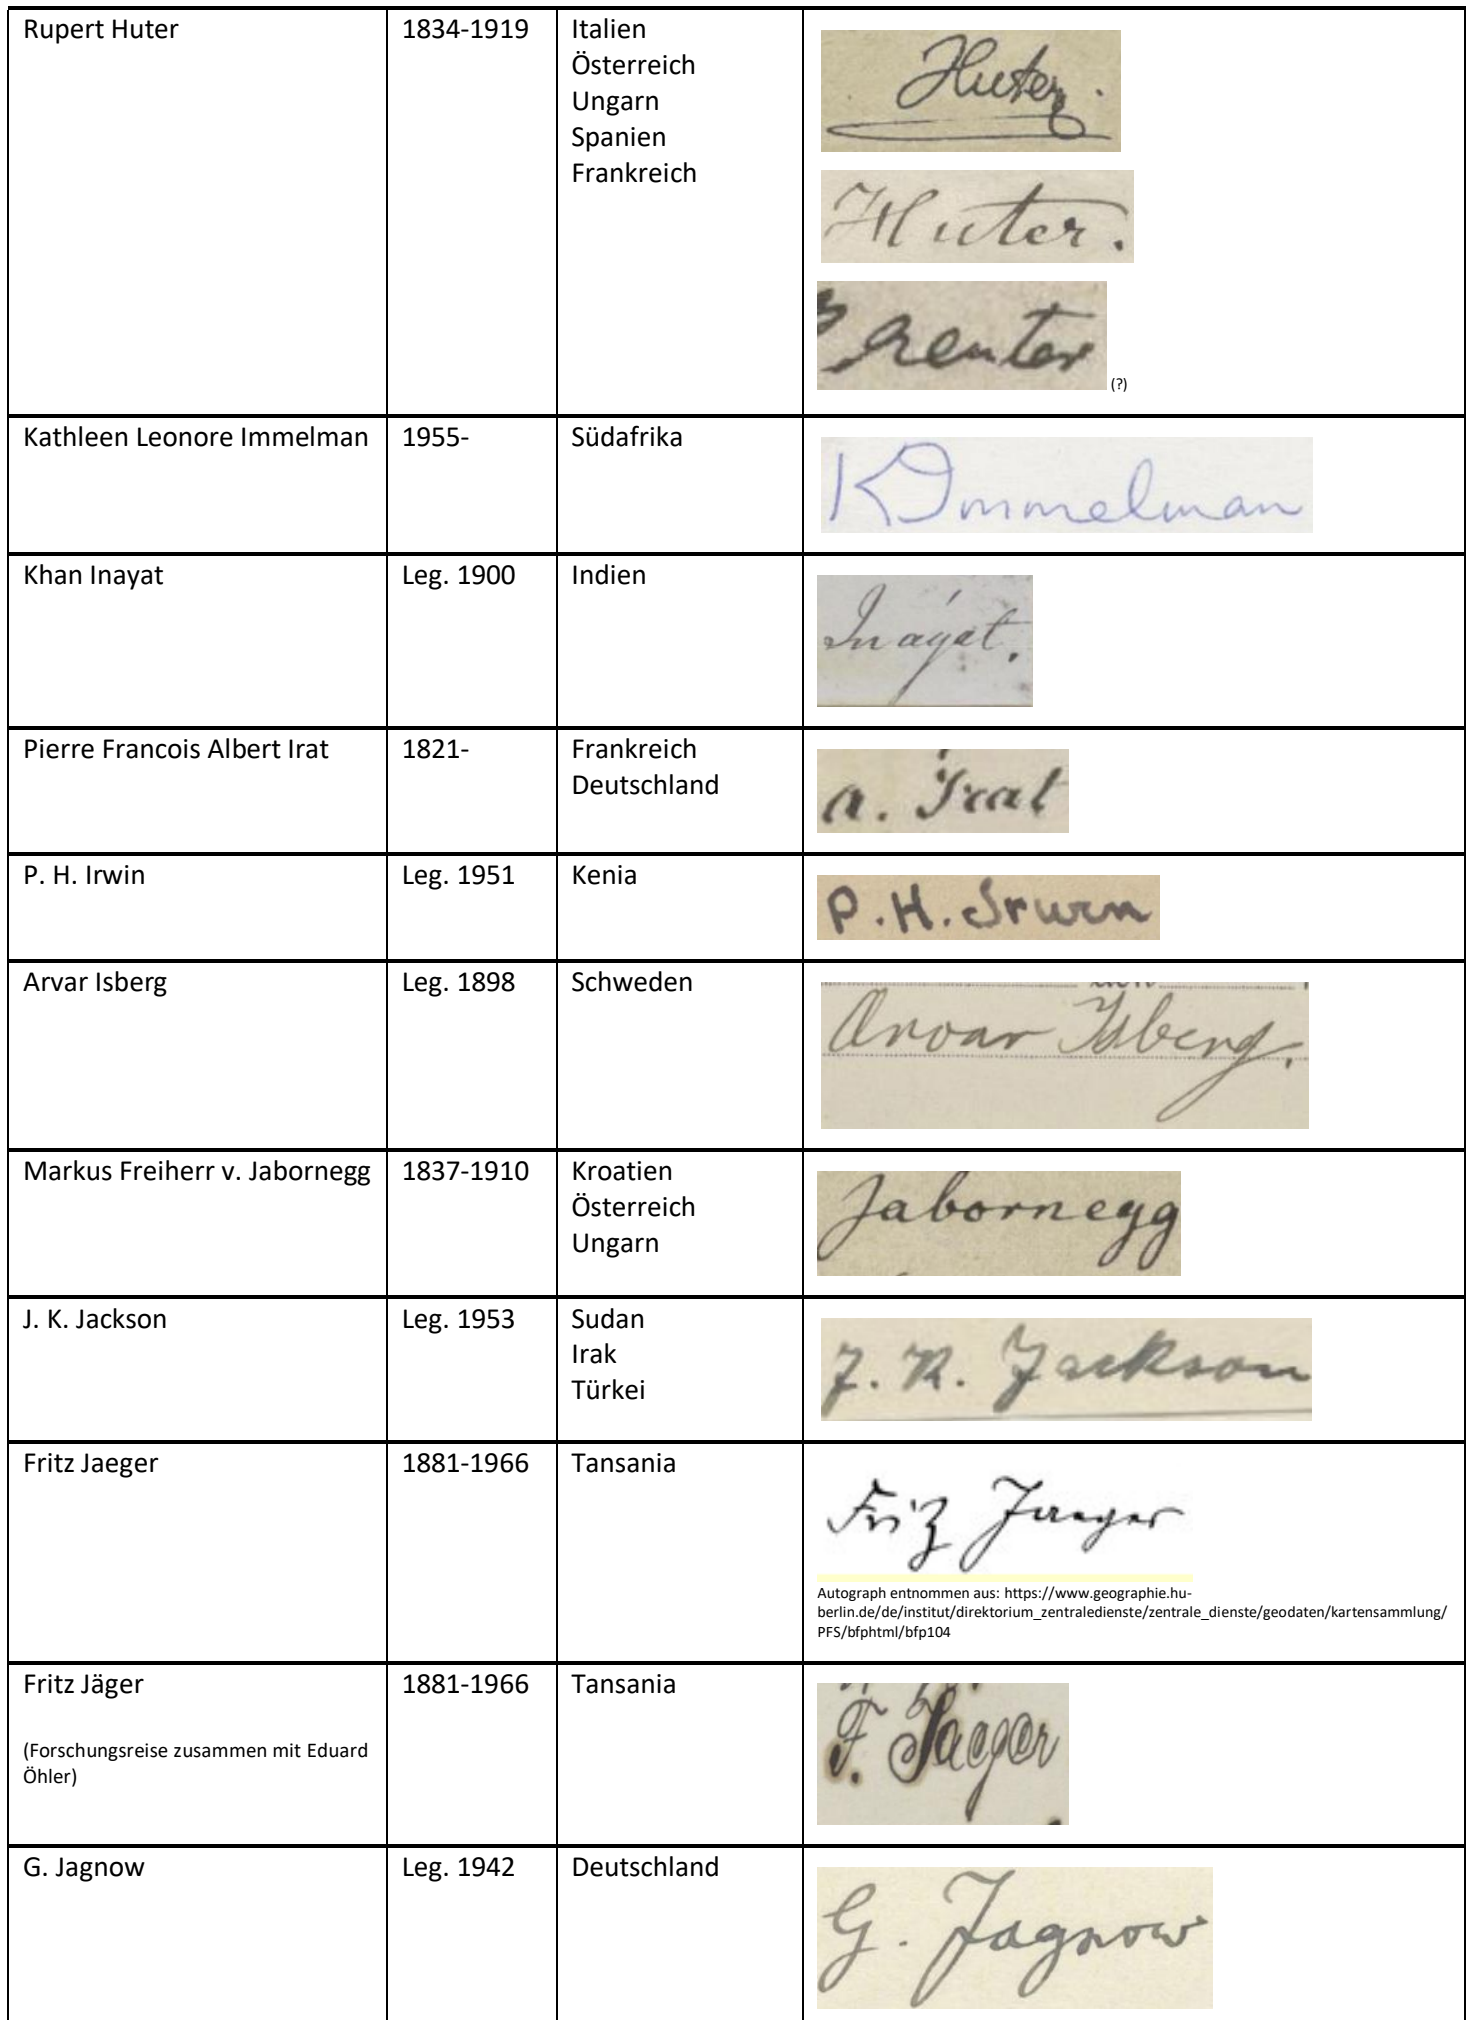 Rupert Huter 1834-1919 Italien
Österreich
Ungarn
Spanien
Frankreich
Huter.
Huter.
(?)
Kathleen Leonore Immelman 1955- Südafrika
K Immelman
Khan Inayat Leg. 1900 Indien
Ináyat.
Pierre Francois Albert Irat 1821- Frankreich
Deutschland
A. Irat
P. H. Irwin Leg. 1951 Kenia
P. H. Irwin
Arvar Isberg Leg. 1898 Schweden
Arvar Isberg.
Markus Freiherr v. Jabornegg 1837-1910 Kroatien
Österreich
Ungarn
Jabornegg
J. K. Jackson Leg. 1953 Sudan
Irak
Türkei
J. K. Jackson
Fritz Jaeger 1881-1966 Tansania
Fritz Jaeger
Autograph entnommen aus: https://www.geographie.hu-
berlin.de/de/institut/direktorium_zentraledienste/zentrale_dienste/geodaten/kartensammlung/
PFS/bfphtml/bfp104
Fritz Jäger 1881-1966 Tansania
(Forschungsreise zusammen mit Eduard
Öhler)
F. Jaeger
G. Jagnow Leg. 1942 Deutschland
G. Jagnow